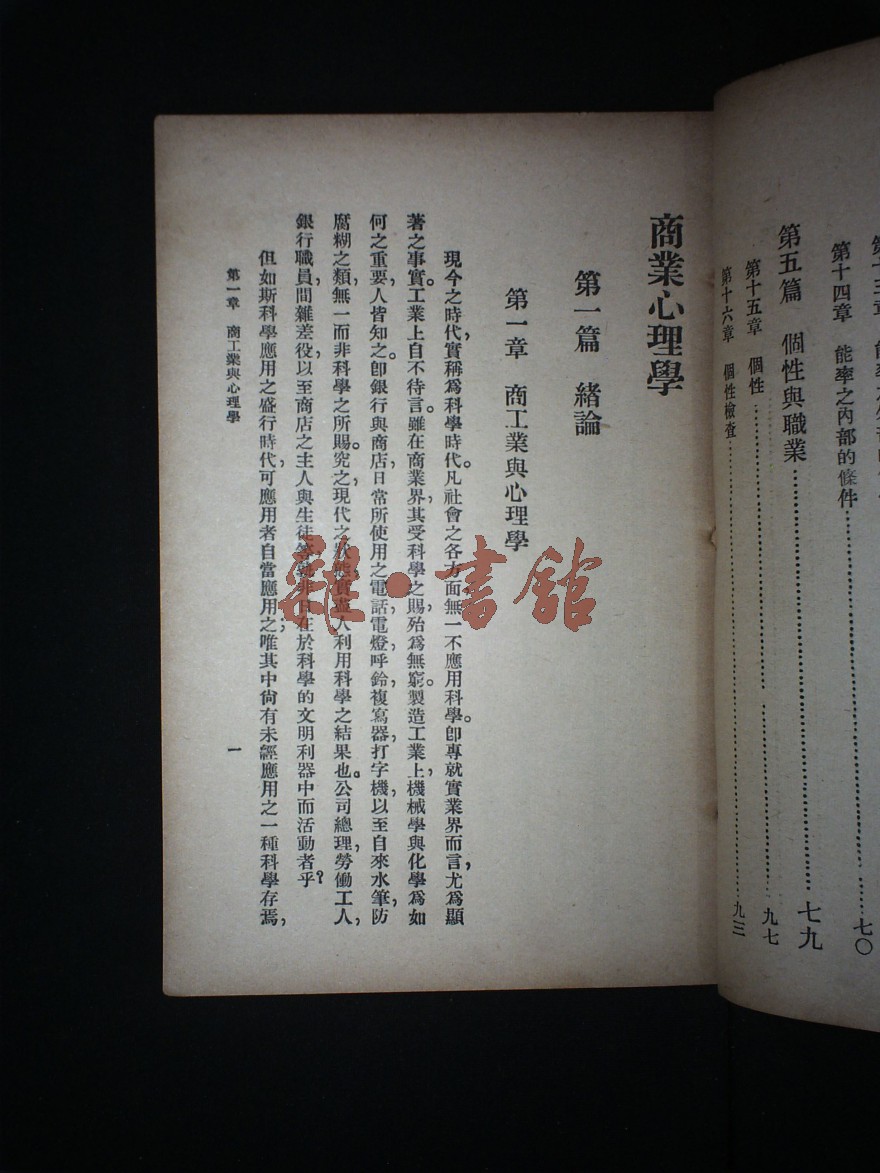 第十四章 能率之內部的條件……七〇
第五篇 個性與職業……七九
第十五章 個性……九七
第十六章 個性檢查……九三
商業心理學
第一篇 緒論
第一章 商工業與心理學
現今之時代,實稱爲科學時代。凡社會之各方面無一不應用科學。卽專就實業界而言,尤爲顯
著之事實。工業上自不待言。雖在商業界,其受科學之賜,殆爲無窮。製造工業上,機械學與化學爲如
何之重要,人皆知之。卽銀行與商店,日常所使用之電話,電燈,呼鈴,複寫器,打字機,以至自來水筆,防
腐糊之類,無一而非科學之所賜。究之,現代之狀態,實盡人利用科學之結果也。公司總理,勞働工人,
銀行職員,間雜差役,以至商店之主人與生徒等,孰非日在於科學的文明利器中而活動者乎?
但如斯科學應用之盛行時代,可應用者自當應用之,唯其中尙有未經應用之一種科學存焉,
第一章 商工業與心理學
一
雜·書館